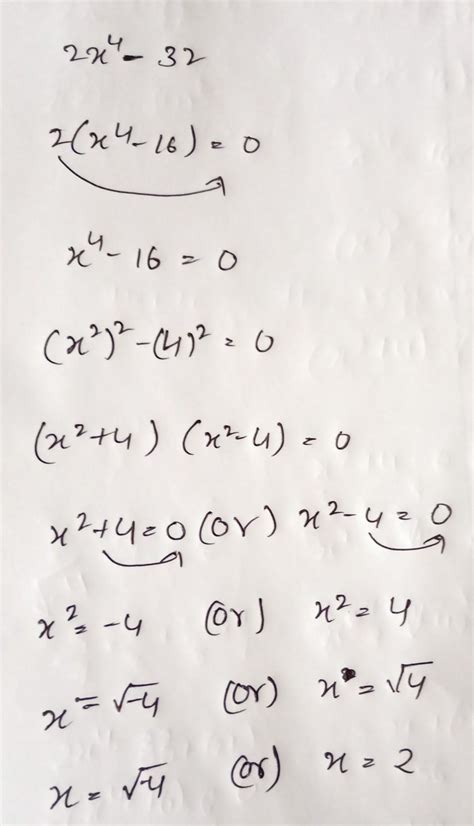 2x⁴ - 32
2(x⁴ - 16) = 0
x⁴ - 16 = 0
(x²)² - (4)² = 0
(x² + 4) (x² - 4) = 0
x² + 4 = 0 (or) x² - 4 = 0
x² = -4 (or) x² = 4
x = √-4 (or) x = √4
x = √-4 (or) x = 2